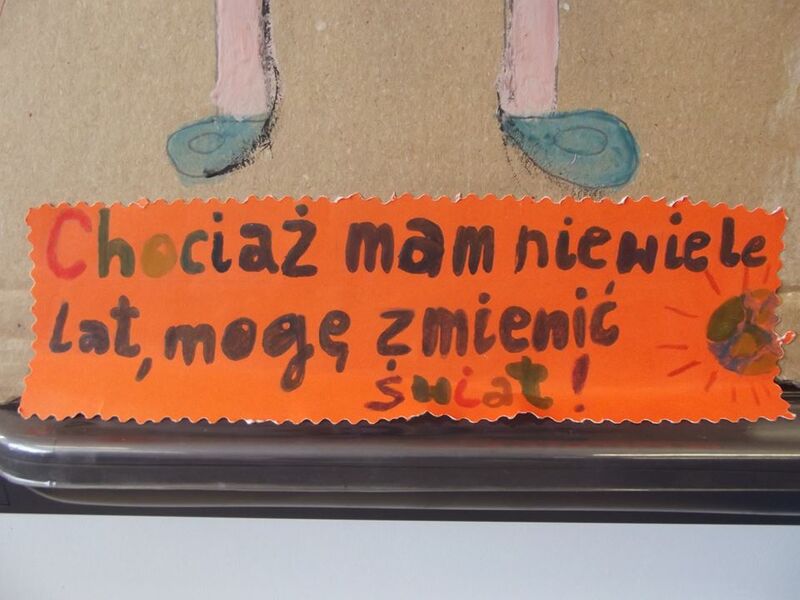 Chociaż mam niewiele
lat, mogę zmienić
świat!